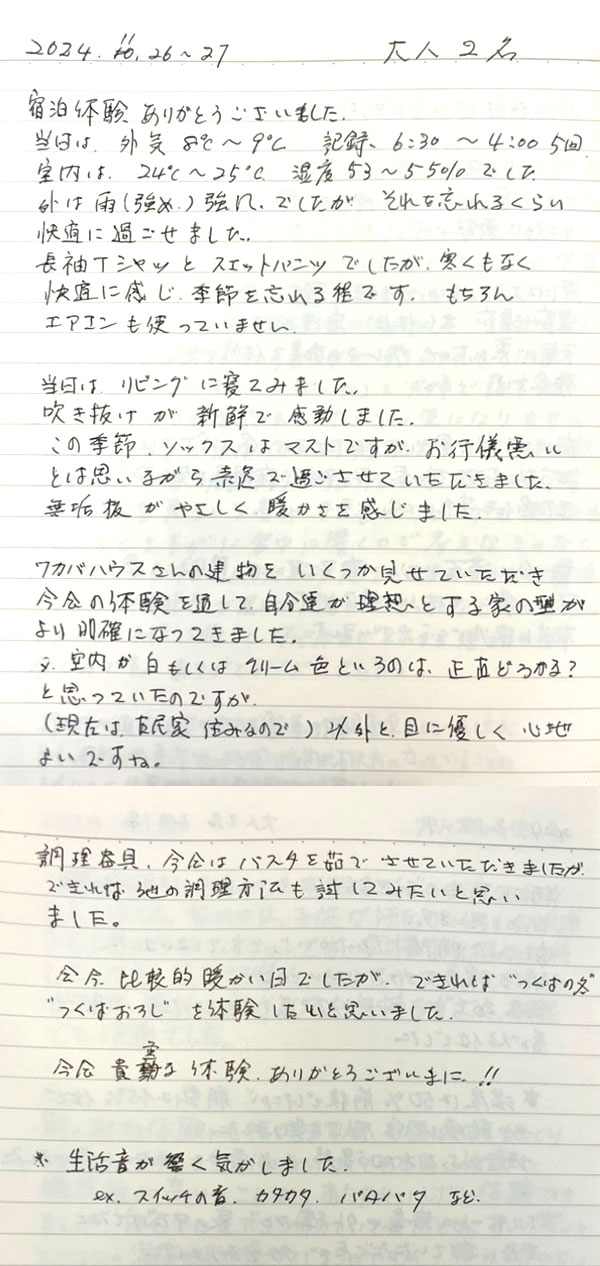 2024. 11. 26〜27 大人2名
宿泊体験 ありがとうございました.
当日は, 外気 8℃〜9℃ 記録、6:30 〜4:00 5回
室内は, 24℃〜25℃ 湿度 53〜55% でした
外は雨(強め.) 強風. でしたが それを忘れるくらい
快適に過ごせました.
長袖Tシャツと スエットパンツ でしたが, 寒くもなく
快適に感じ, 季節を忘れる程です. もちろん
エアコンも使っていません.
当日は, リビングに寝てみました.
吹き抜けが 新鮮で感動しました.
この季節, ソックスはマストですが, お行儀悪い
とは思いながら素足で過ごさせていただきました.
無垢板がやさしく暖かさを感じました.
ワカバハウスさんの建物を いくつか見せていただき
今会の体験を通して, 自分達が理想とする家の型が
より明確になってきました.
又, 室内が白もしくはクリーム色というのは, 正直どうかな?
と思っていたのですが,
(現在は, 古民家 住みなので) 以外と, 目に優しく 心地
よいですね。
調理器具, 今会はパスタを茹でさせていただきましたが,
できれば他の調理方法も試してみたいと思い
ました。
会今 比較的暖かい日でしたが, できれば "つくばの冬"
"つくばおろし" を体験したいと思いました.
今会 貴重な体験, ありがとうございました!!
※ 生活音が響く気がしました.
ex. スイッチの音. カタカタ. パタパタ など.